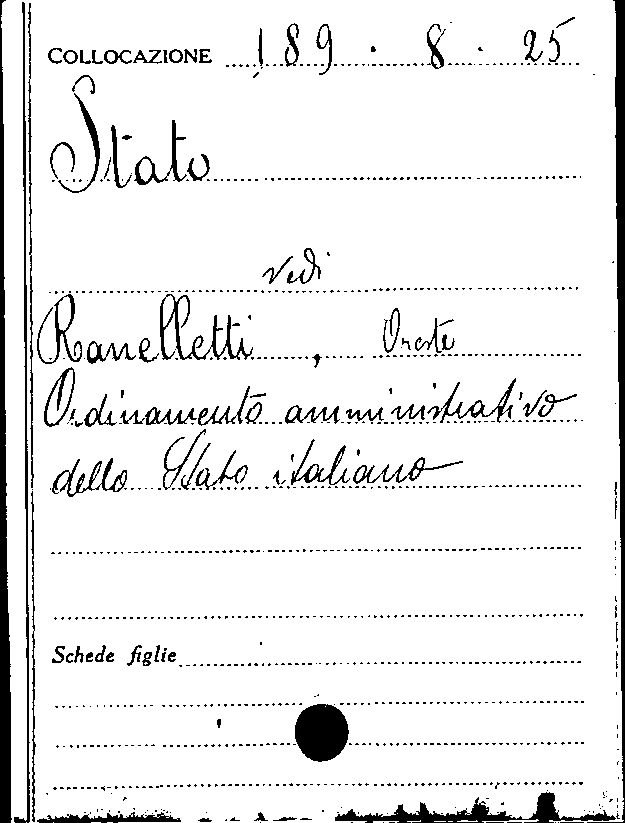 COLLOCAZIONE 189 . 8 . 25
Stato
vedi
Ranelletti , Oreste
Ordinamento amministrativo
dello Stato italiano
Schede figlie